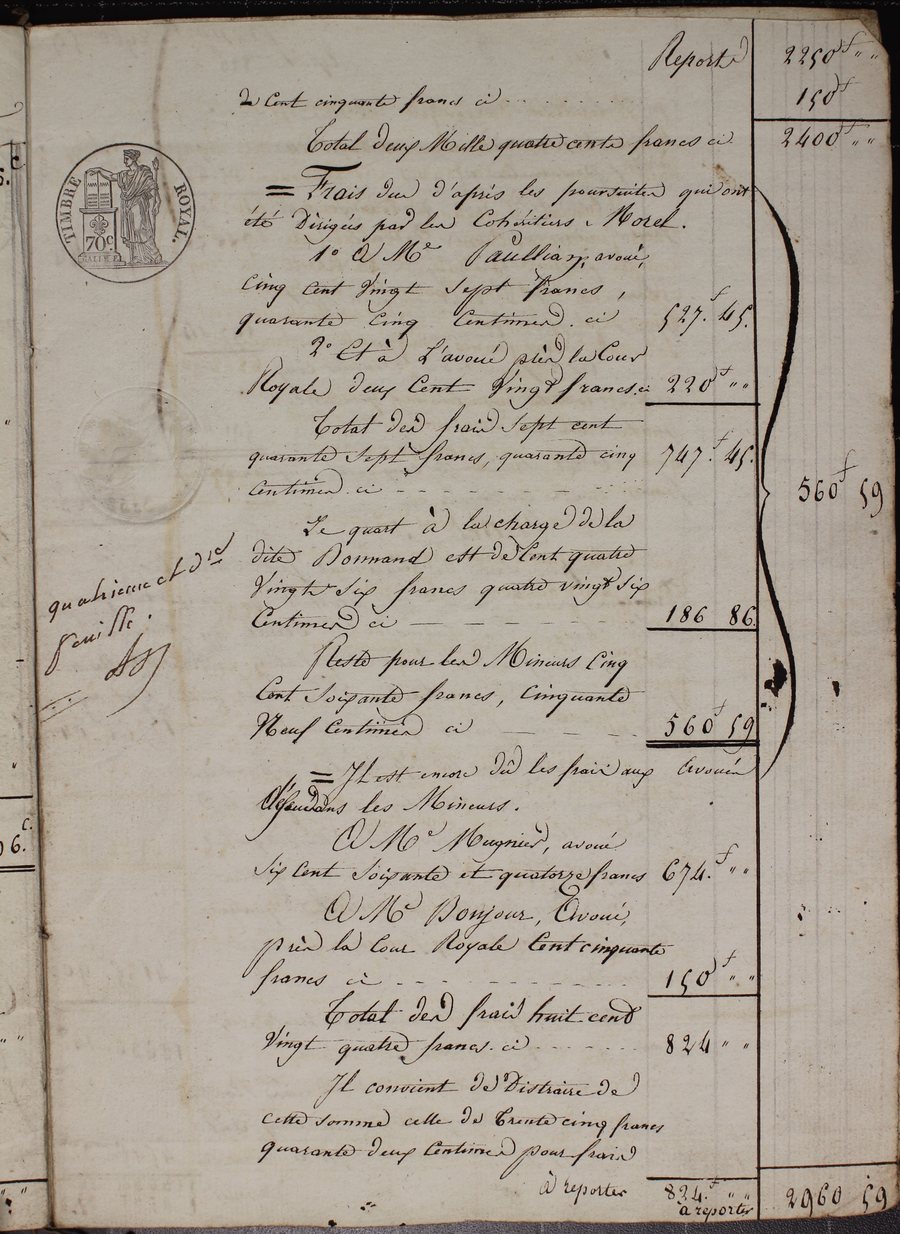 Reporté 2250f " "
de Cent cinquante francs ci 150f
Total deux Mille quatre cents francs ci 2400f " "
= Frais dus d'après les poursuites qui ont
été Dirigées par les Cohéritiers Morel.
TIMBRE ROYAL.
70c
1° A Me Paullian, avoué,
Cinq Cent Vingt Sept francs,
quarante Cinq Centimes. ci 527f. 45.
2° Et à L'avoué près la Cour
Royale deux Cent Vingt francs. ci 220f " "
Total des frais Sept cent
quarante Sept francs, quarante cinq 747f. 45.
Centimes. ci
560f 59
Le quart à la charge de la
dite Bonnand est de Cent quatre
Vingts Six francs quatre vingt Six
Centimes ci 186 86.
quatrieme et dre
feuille.
Reste pour les Mineurs Cinq
Cent Soixante francs, Cinquante
Neuf Centimes ci 560f 59
= Il est encore dû les frais aux Avoués
des Mineurs.
A Me Mugnier, avoué
Six Cent Soixante et quatorze francs 674f. " "
A Me Bonjour, Avoué,
près la Cour Royale Cent cinquante
francs ci 150f " "
Total des frais huit cent
Vingt quatre francs. ci 824 " "
Il convient de Distraire de
cette somme celle de Trente cinq francs
quarante deux Centimes pour frais
à reporter 824f. " " 2960 59
à reporter